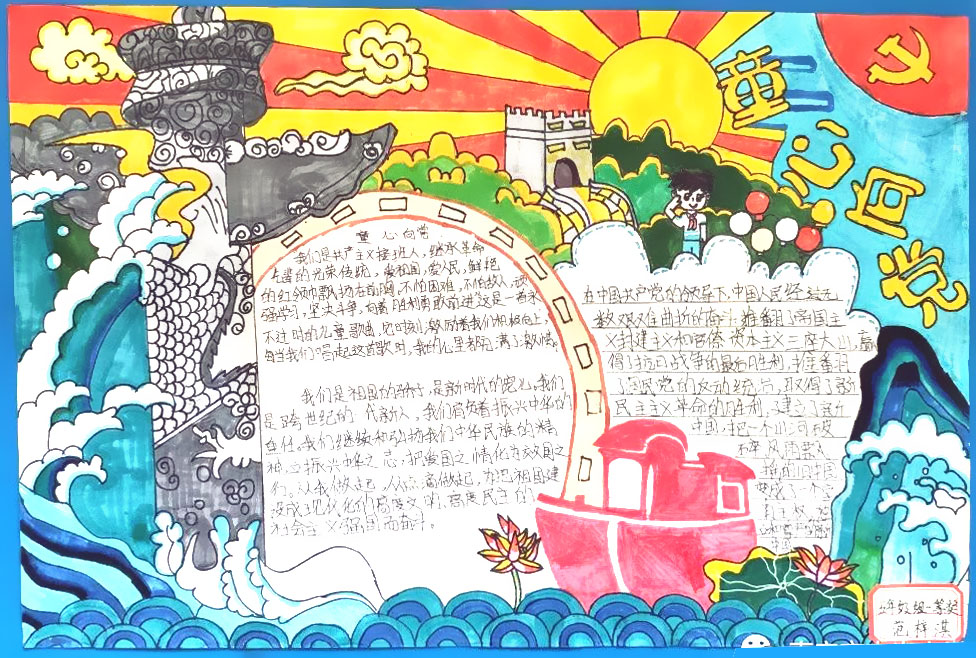 童心向党
童心向党
我们是共产主义接班人，继承革命
先辈的光荣传统，爱祖国，爱人民，鲜艳
的红领巾飘扬在前胸，不怕困难，不怕敌人，顽
强学习，坚决斗争，向着胜利勇敢前进这是一首永
不过时的儿童歌曲，它时刻激励着我们积极向上，
每当我们唱起这首歌时，我的心里都充满了激情。
我们是祖国的是新时代的我们
是跨世纪的一代新人，我们肩负着振兴中华的
责任。我们继续和弘扬我们中华民族的精
神，立振兴中华之志，把爱国之情化为效国之
行。从我做起，做起，为把祖国建
设成现代化的高度文明，高度民主的
社会主义强国而奋斗。
在中国共产党的领导下，中国人民经过无
数艰难曲折的奋斗，推翻了帝国主
义封建主义和官僚资本主义三座大山，赢
得了抗日战争的最后胜利，推翻
了国民党的反动统治，取得了新
民主主义革命的胜利，建立了新
中国，把一个山河破
碎，风雨
的旧中国
变成了一个
年级组一等奖
范梓淇